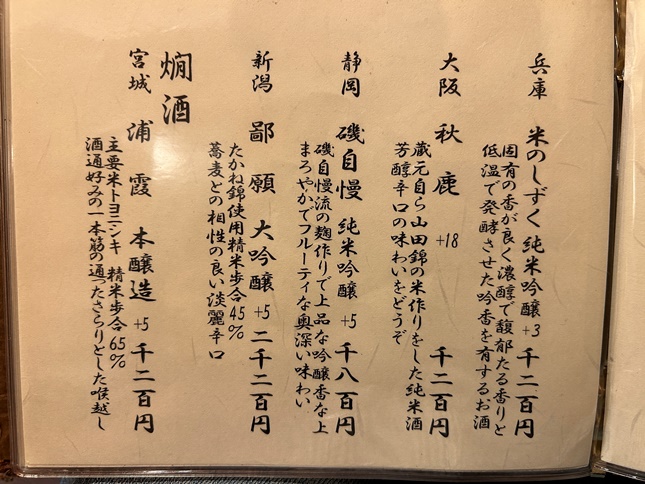 兵庫 米のしずく 純米吟醸 +3 千二百円
固有の香が良く濃醇で馥郁たる香りと
低温で発酵させた吟香を有するお酒
大阪 秋鹿 +18 千二百円
蔵元自ら山田錦の米作りをした純米酒
芳醇辛口の味わいをどうぞ
静岡 磯自慢 純米吟醸 +5 千八百円
磯自慢流の麹作りで上品な吟醸香な上
まろやかでフルーティな奥深い味わい
新潟 鄙願 大吟醸 +5 二千二百円
たかね錦使用精米歩合45%
蕎麦との相性の良い淡麗辛口
燗酒
宮城 浦霞 本醸造 +5 千二百円
主要米トヨニシキ 精米歩合65%
酒通好みの一本筋の通ったさらりとした喉越し